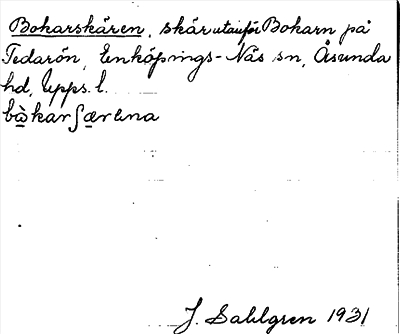 Bokarskären, skär utanför Bokarn på
Tedarön, Enköpings-Näs sn, Åsunda
hd, Upps. l.
bò̱karʃæ̱rɛna
J. Sahlgren 1931